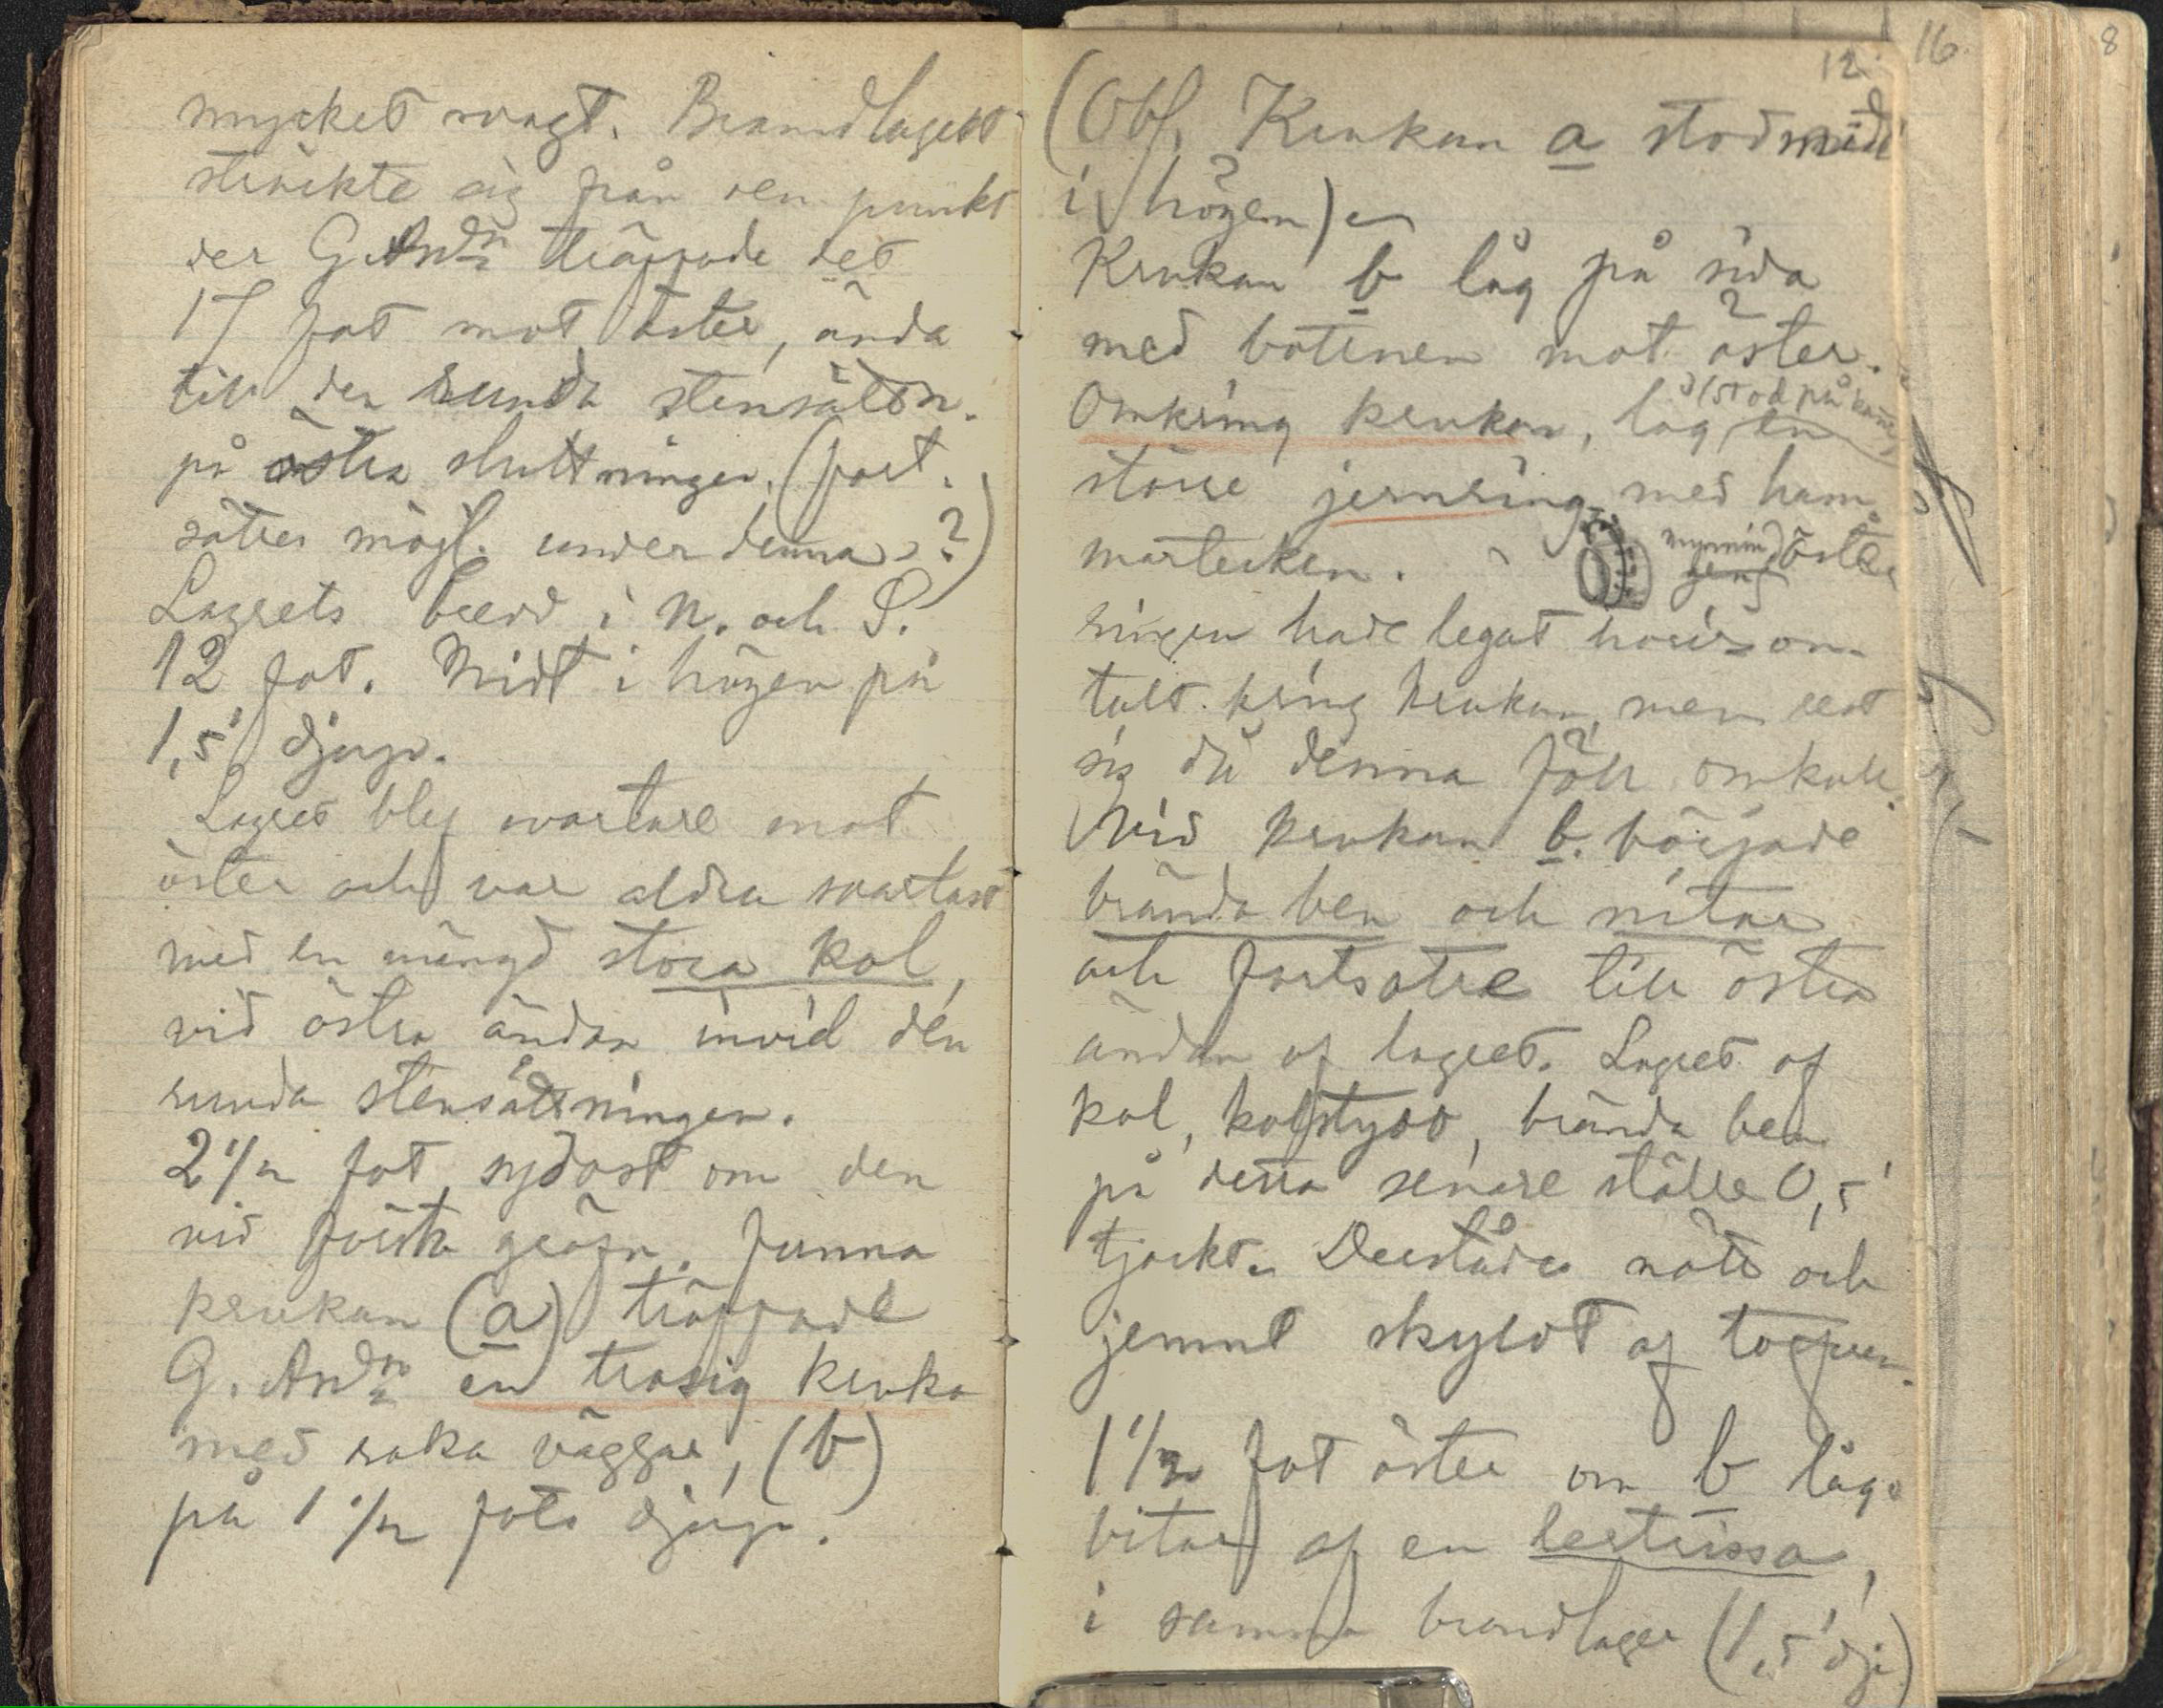 mycket svagt. Brandlagret
sträckte sig från den punkt
der G. Andn träffade det
17 fot mot öster, ända
till den runda stensättn.
på östra sluttningen. (fort-
sätter möjl. under denna?)
Lagrets bredd i N. och S.
12 fot. Midt i högen på
1,5' djup.
Lagret blef svartare mot
öster och var aldra svartast
med en mängd stora kol,
vid östra ändan invid den
runda stensättningen.
2 1/2 fot sydost om den
vid första gräfn. funna
krukan (a) träffade
G. Andn en trasig kruka
med raka väggar, (b)
på 1 1/2 fots djup.
12.
16.
8
(Obs. Krukan a stod midt
i högen)
Krukan b låg på sida
med bottnen mot öster.
Omkring krukan, låg en
(stod på kant)
större jernring med ham-
martecken.
mynning öster
ringen hade legat horizon-
talt kring krukan, men rest
sig då denna föll omkull.
Vid krukan b. började
brända ben och nitar
och fortsatte till östra
ändan af lagret. Lagret af
kol, kolstybb, brända ben
på detta senare ställe 0,5'
tjockt. Derstädes nätt och
jemnt skyldt af torfven.
1 1/2 fot öster om b låg
bitar af en lertrissa,
i samma brandlager (1,5' dj.)